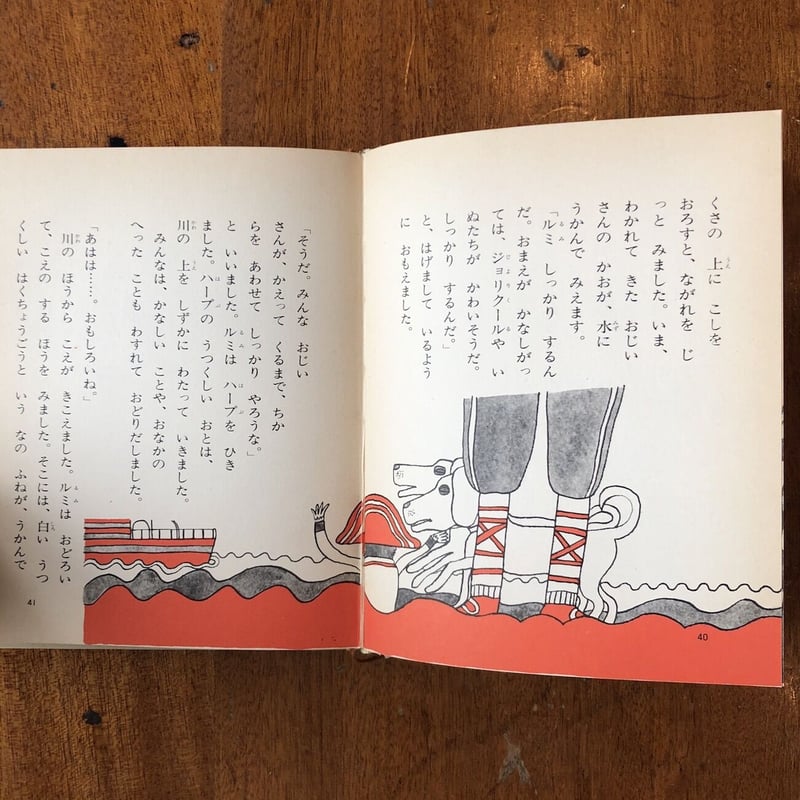 くさの 上に こしを
おろすと、ながれを じ
っと みました。いま、
わかれて きた おじい
さんの かおが、水に
うかんで みえます。
「ルミ しっかり するん
だ。おまえが かなしがっ
ては、ジョリクールや い
ぬたちが かわいそうだ。
しっかり するんだ。」
と、はげまして いるよう
に おもえました。
40
「そうだ。みんな おじい
さんが、かえって くるまで、ちか
らを あわせて しっかり やろうな。」
と いいました。ルミは ハープを ひき
ました。ハープの うつくしい おとは、
川の 上を しずかに わたって いきました。
みんなは、かなしい ことや、おなかの
へった ことも わすれて おどりだしました。
「あはは……。おもしろいね。」
川の ほうから こえが きこえました。ルミは おどろい
て、こえの する ほうを みました。そこには、白い うつ
くしい はくちょうごうと いう なの ふねが、うかんで
41